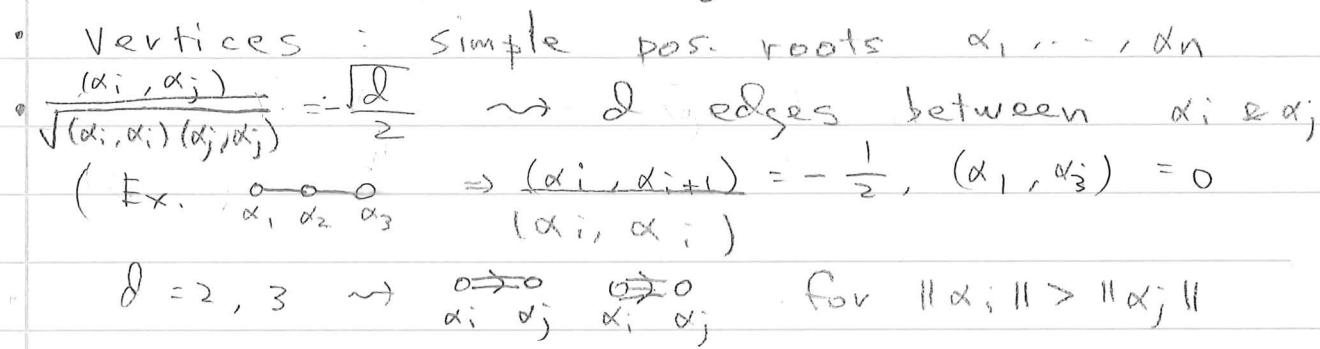 • Vertices : simple pos. roots α₁, ..., αn
• (αi, αj) / √(αi, αi)(αj, αj) = -√d/2 ⇝ d edges between αi & αj
( Ex. o—o—o α₁ α₂ α₃ ⇒ (αi, αi+1) / (αi, αi) = -1/2, (α₁, α₃) = 0
d = 2, 3 ⇝ αi αj αi αj for ||αi|| > ||αj||